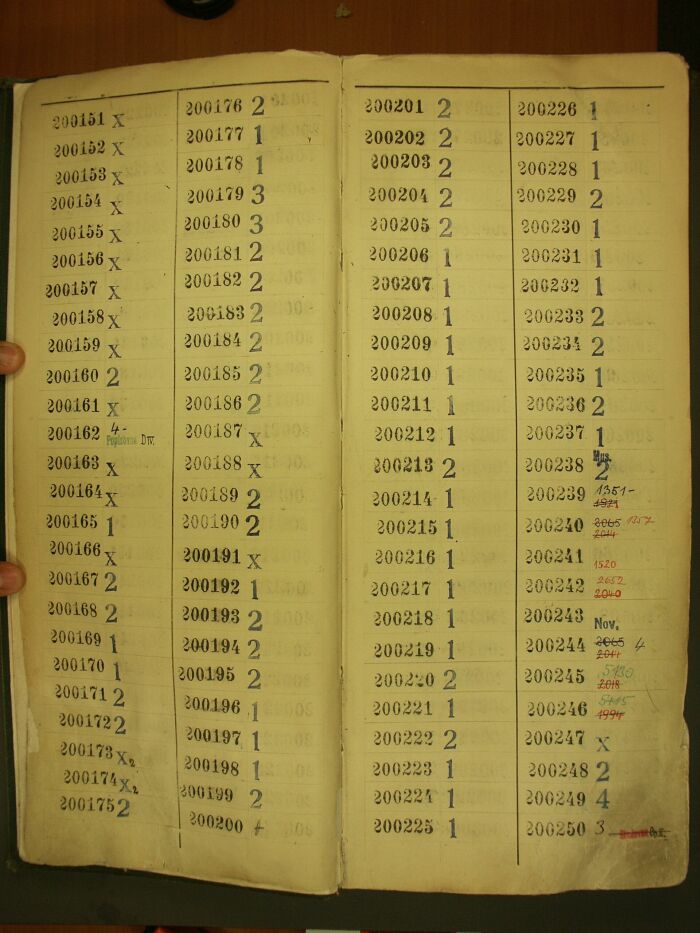 200151 X
200152 X
200153 X
200154 X
200155 X
200156 X
200157 X
200158 X
200159 X
200160 2
200161 X
200162 4- Div.
200163 X
200164 X
200165 1
200166 X
200167 2
200168 2
200169 1
200170 1
200171 2
200172 2
200173 X2
200174 X2
200175 2
200176 2
200177 1
200178 1
200179 3
200180 3
200181 2
200182 2
200183 2
200184 2
200185 2
200186 2
200187 X
200188 X
200189 2
200190 2
200191 X
200192 1
200193 2
200194 2
200195 2
200196 1
200197 1
200198 1
200199 2
200200 +
200201 2
200202 2
200203 2
200204 2
200205 2
200206 1
200207 1
200208 1
200209 1
200210 1
200211 1
200212 1
200213 2
200214 1
200215 1
200216 1
200217 1
200218 1
200219 1
200220 2
200221 1
200222 2
200223 1
200224 1
200225 1
200226 1
200227 1
200228 1
200229 2
200230 1
200231 1
200232 1
200233 2
200234 2
200235 1
200236 2
200237 1
Mus.
200238 2
200239 1351-
200240 2065 1357
2014
200241
1520
200242 2652
2040
200243
Nov.
200244 2065 4
2011
200245 5130
2018
200246 5115
1994
200247 X
200248 2
200249 4
200250 3